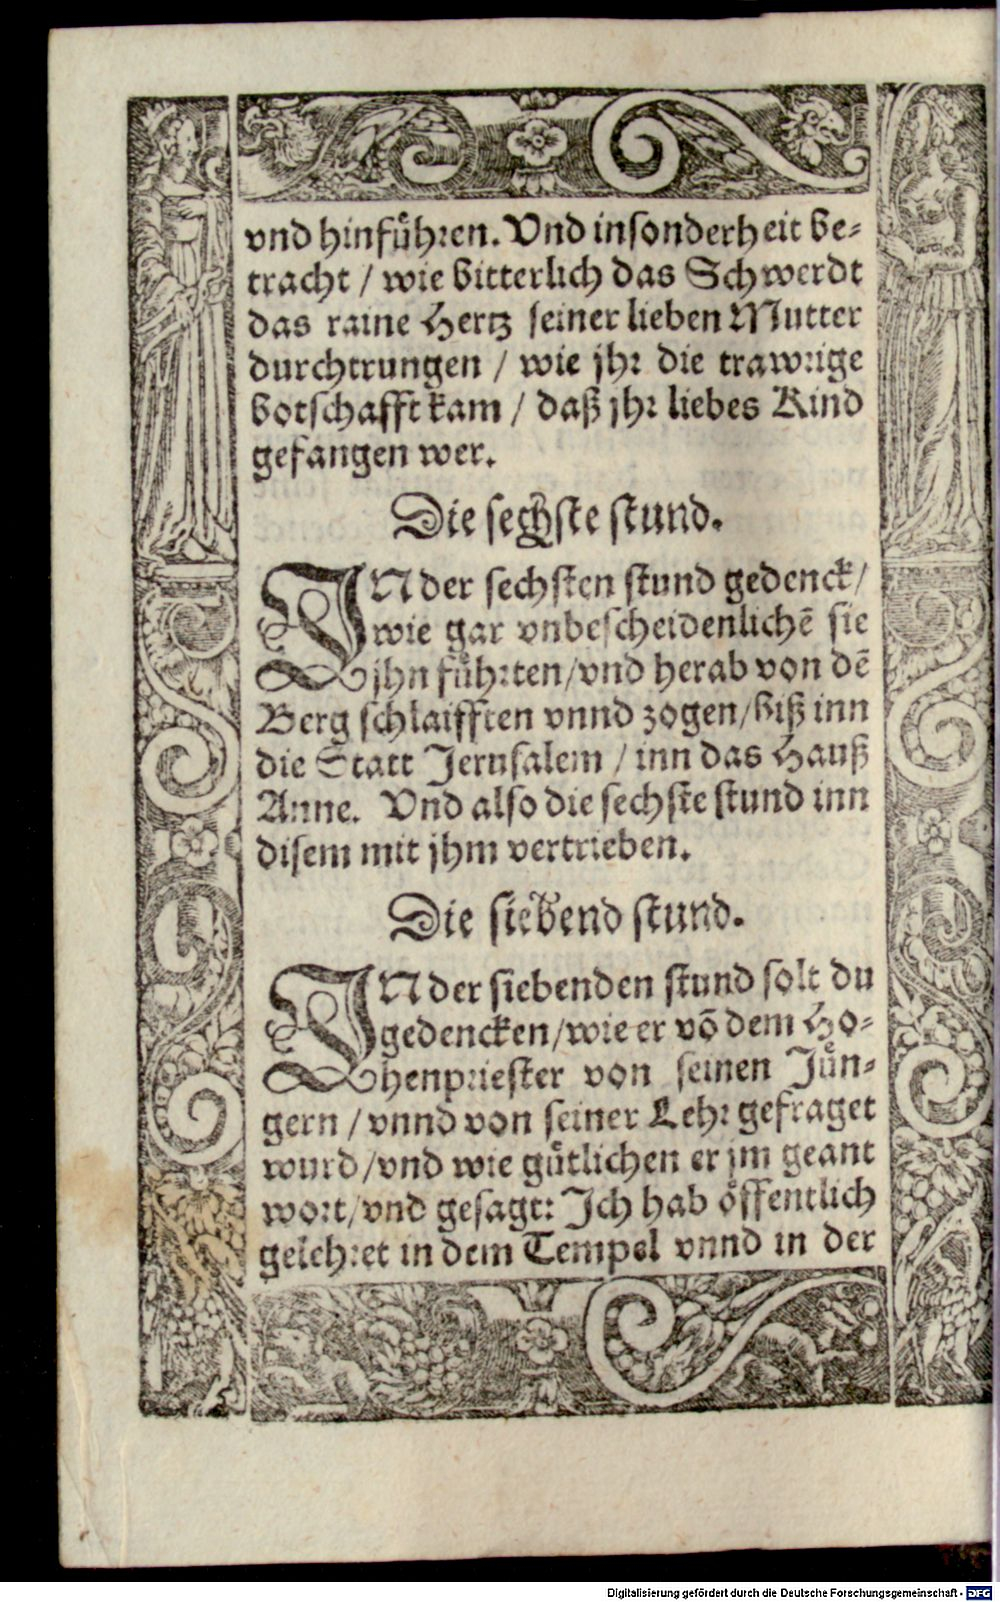 vnd hinfuͤhren. Vnd insonderheit be-
tracht / wie bitterlich das Schwerdt
das raine Hertz seiner lieben Mutter
durchtrungen / wie jhr die trawrige
botschafft kam / daß jhr liebes Kind
gefangen wer.
Die sechste stund.
IN der sechsten stund gedenck /
wie gar vnbescheidenlichẽ sie
jhn fuͤhrten / vnd herab von dẽ
Berg schlaifften vnnd zogen / biß inn
die Statt Jerusalem / inn das Hauß
Anne. Vnd also die sechste stund inn
disem mit jhm vertrieben.
Die siebend stund.
IN der siebenden stund solt du
gedencken / wie er võ dem Ho-
henpriester von seinen Juͤn-
gern / vnnd von seiner Lehr gefraget
wurd / vnd wie guͤtlichen er jm geant
wort / vnd gesagt: Ich hab oͤffentlich
gelehret in dem Tempel vnnd in der
Digitalisierung gefördert durch die Deutsche Forschungsgemeinschaft - DFG